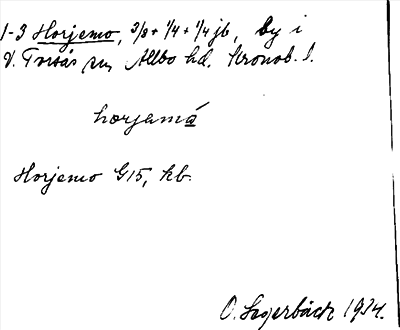 1-3 Horjemo, 3/8 + 1/4 + 1/4 jb, by i
V. Torsås sn, Allbo hd. Kronob. l.
horjamå
Horjemo G15, kb.
O. Segerbäck 1934.